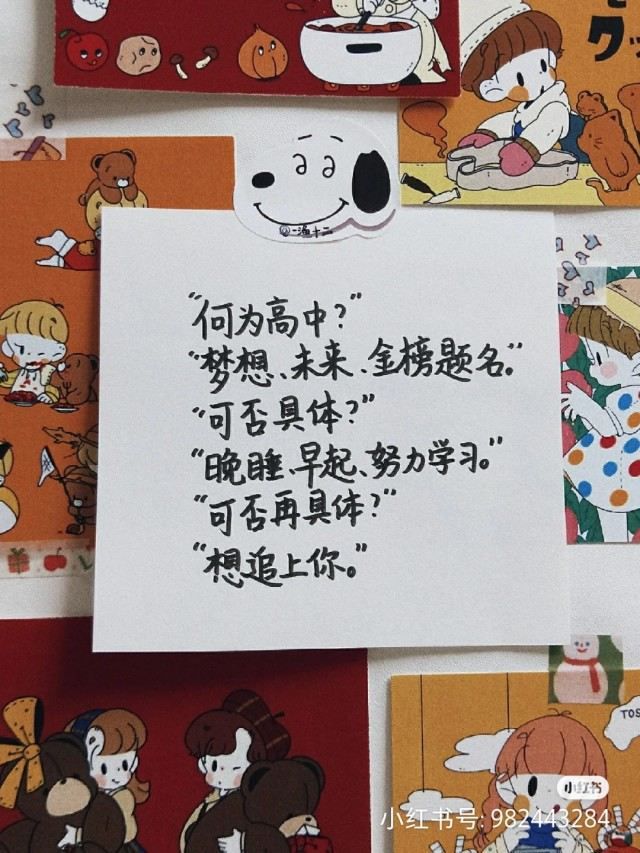 ク
@一洳十二
"何为高中?"
"梦想、未来、金榜题名。"
"可否具体?"
"晚睡、早起、努力学习。"
"可否再具体?"
"想追上你。"
TOS
小红书
小红书号: 982443284